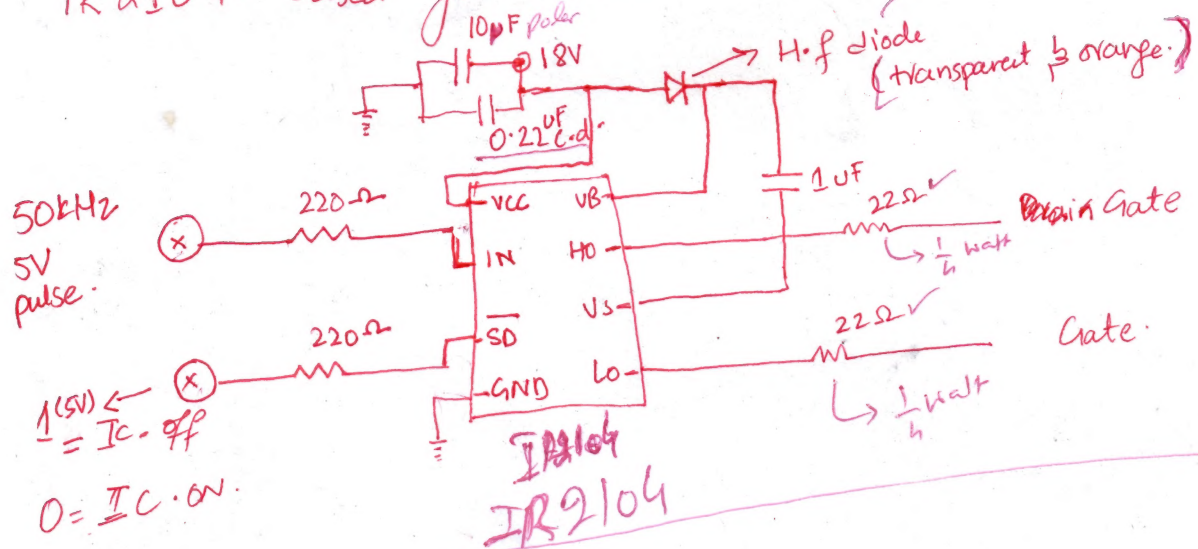 10µF polar
18V
H.f diode
(transparent & orange.)
0.22uF c.d.
50kHz
5V
pulse.
220Ω
VCC VB
1uF
22Ω ✓
Gate
1/4 watt
IN HO
VS
220Ω
SD
22Ω ✓
Gate.
LO
1/4 watt
GND
1(5V) ←
= IC. off
0 = IC.ON.
IR2104
IR2104